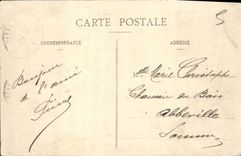 CARTE POSTALE
CORRESPONDANCE
ADRESSE
Bonjour
à l'ami
Mlle Marie Christophe
Chaussée du Bois
Abbeville
Somme